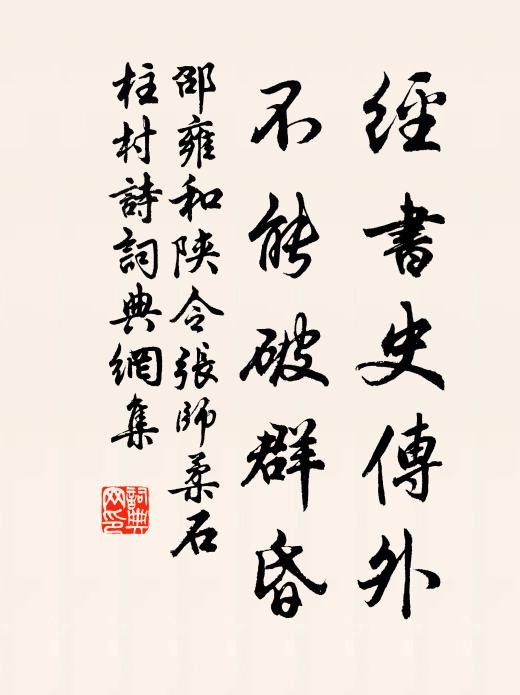 經書史傳外
不能破群昏
邵雍和陝令張師柔石
柱村詩詞典網集
詞典網印